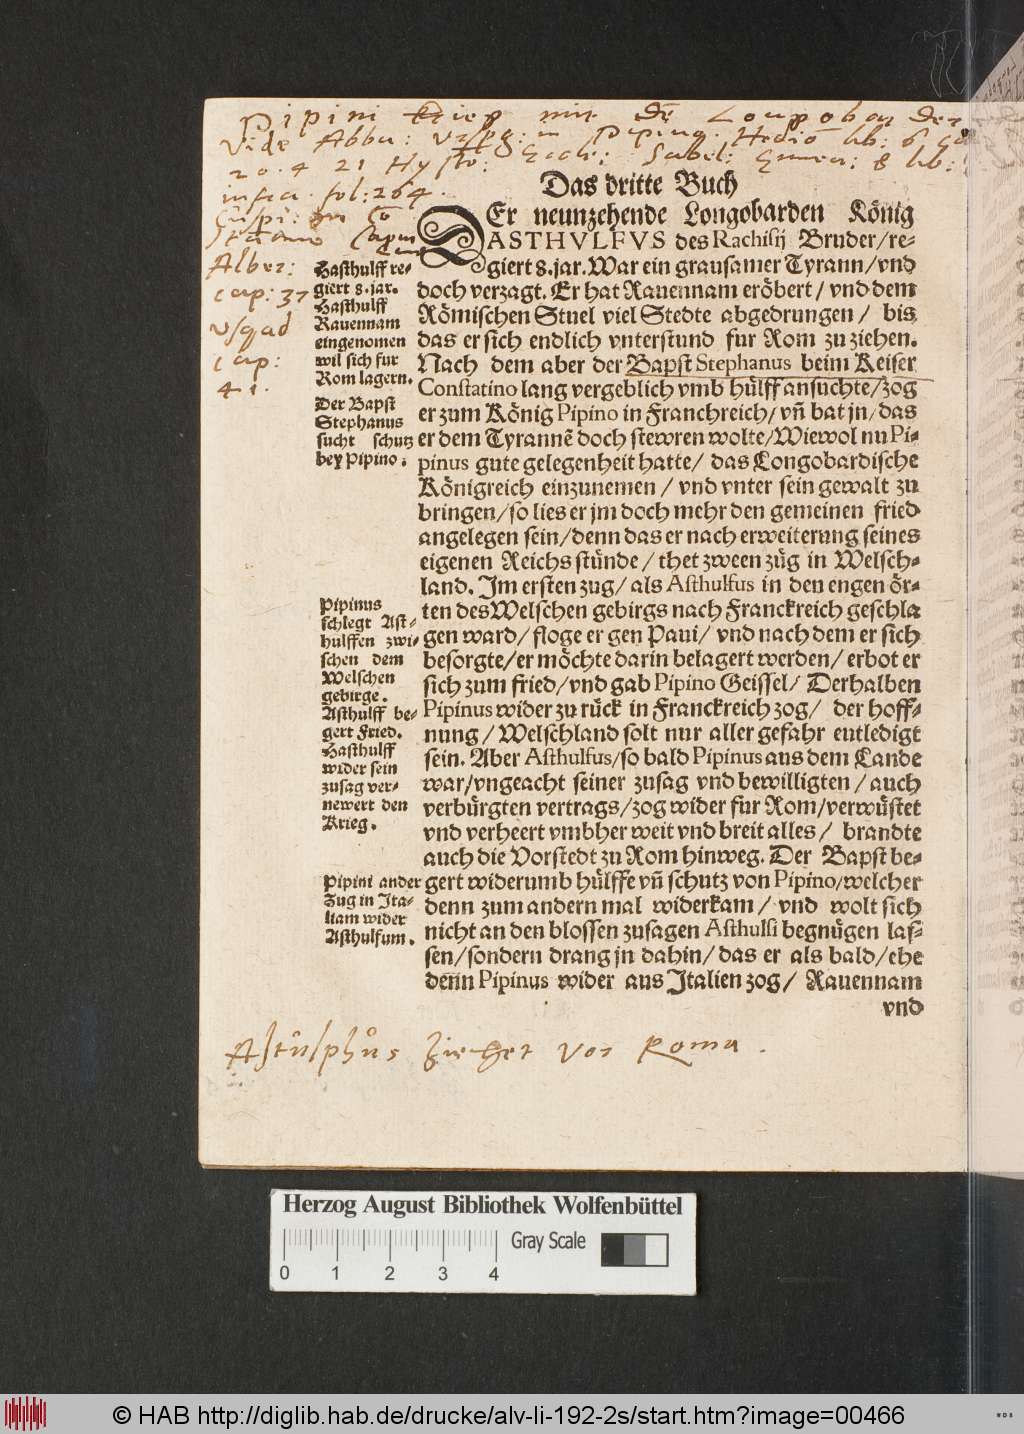 Pipini krieg mit dē Longobarden
Vide Abba: Vrspg: in Pipino. Hedio lib: 6
20. 4 21 Hysto: Eccle: Sabel: Ennea: 8 lib:
infra. fol: 264.
Das dritte Buch
Alber:
cap: 37
vsqad
cap:
41.
DEr neunzehende Longobarden König
ASTHVLFVS des Rachisij Bruder/re-
giert 8. jar. War ein grausamer Tyrann/vnd
doch verzagt. Er hat Rauennam eröbert/vnd dem
Römischen Stuel viel Stedte abgedrungen/ bis
das er sich endlich vnterstund fur Rom zu ziehen.
Nach dem aber der Bapst Stephanus beim Keiser
Constatino lang vergeblich vmb hülff ansuchte/zog
er zum König Pipino in Franchreich/ vñ bat jn/das
er dem Tyrannē doch stewren wolte/Wiewol nu Pi-
pinus gute gelegenheit hatte/ das Longobardische
Königreich einzunemen/vnd vnter sein gewalt zu
bringen/so lies er jm doch mehr den gemeinen fried
angelegen sein/denn das er nach erweiterung seines
eigenen Reichs stünde/thet zween züg in Welsch-
land. Im ersten zug/ als Asthulfus in den engen ör-
ten des Welschen gebirgs nach Franckreich geschla
gen ward/ floge er gen Paui/ vnd nach dem er sich
besorgte/er möchte darin belagert werden/ erbot er
sich zum fried/vnd gab Pipino Geissel/ Derhalben
Pipinus wider zu rück in Franckreich zog/ der hoff-
nung/Welschland solt nur aller gefahr entledigt
sein. Aber Asthulfus/so bald Pipinus aus dem Lande
war/vngeacht seiner zusag vnd bewilligten/auch
verbürgten vertrags/zog wider fur Rom/verwüstet
vnd verheert vmbher weit vnd breit alles/ brandte
auch die Vorstedt zu Rom hinweg. Der Bapst be-
gert widerumb hülffe vñ schutz von Pipino/welcher
denn zum andern mal widerkam/vnd wolt sich
nicht an den blossen zusagen Asthulfi begnügen las-
sen/sondern drang jn dahin/das er als bald/ehe
denn Pipinus wider aus Italien zog/ Rauennam
vnd
Hasthulff re-
giert 8. jar.
Hasthulff
Rauennam
eingenomen
wil sich fur
Rom lagern.
Der Bapst
Stephanus
sucht schutz
bey Pipino.
Pipinus
schlegt Ast-
hulffen zwi-
schen dem
Welschen
gebirge.
Asthulff be-
gert Fried.
Hasthulff
wider sein
zusag ver-
newert den
Krieg.
Pipini ander
Zug in Ita-
liam wider
Asthulfum.
Astulphus Ziehet vor Roma.
Herzog August Bibliothek Wolfenbüttel
Gray Scale
0 1 2 3 4
© HAB http://diglib.hab.de/drucke/alv-li-192-2s/start.htm?image=00466